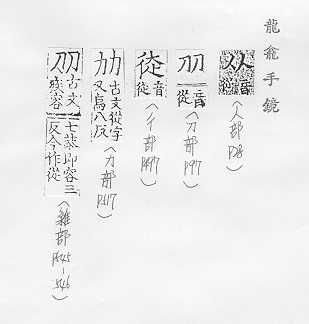 龍龕手鏡
从 音從
(人部 P28)
音從
(刀部 P97)
音從
(彳部 P497)
古文從字
又爲八反
(力部 P517)
古文
疾容
七恭即容三
反今作從
(雜部 P545-546)